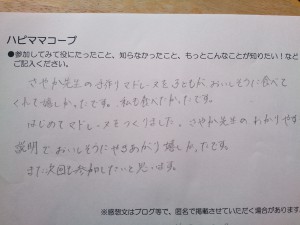 ハピママコープ
●参加してみて役にたったこと、知らなかったこと、もっとこんなことが知りたい！など
ご記入ください。
さやか先生の手作りマドレーヌを子どもがおいしそうに食べて
くれて嬉しかったです。私も食べたかったです。
はじめてマドレーヌをつくりました。さやか先生のわかりやすい
説明でおいしそうにやきあがり嬉しかったです。
また次回も参加したいと思います。
※感想文はブログ等で、匿名で掲載させていただく場合があります。